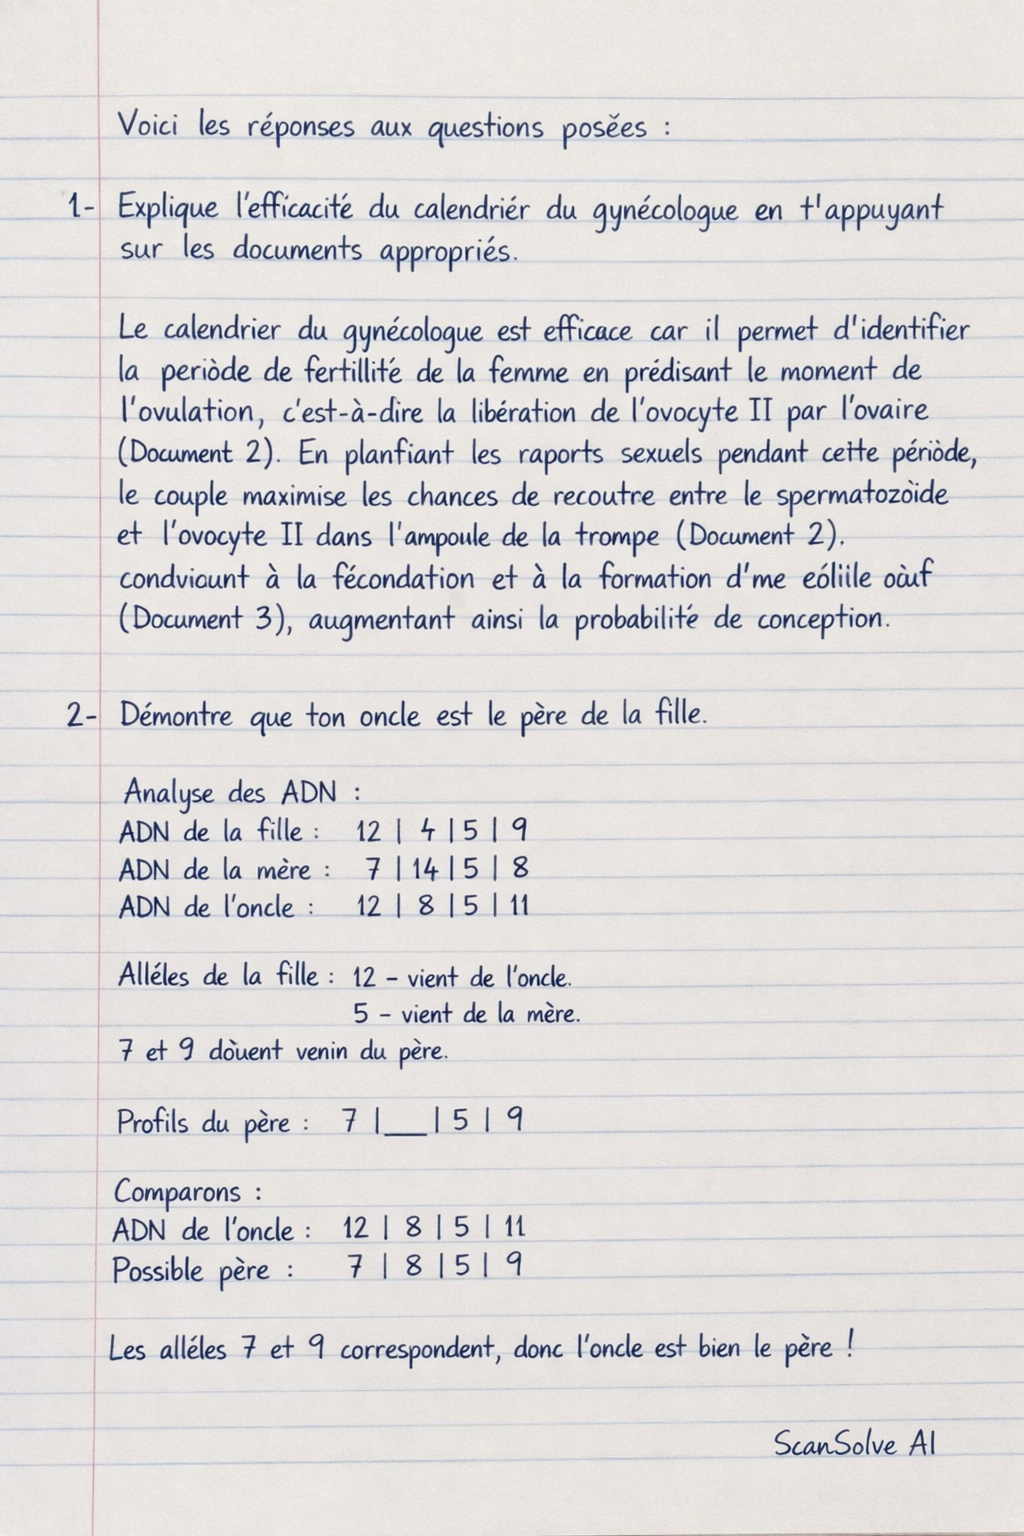 Voici les réponses aux questions posées :
1- Explique l'efficacité du calendriér du gynécologue en t'appuyant
sur les documents appropriés.
Le calendrier du gynécologue est efficace car il permet d'identifier
la periòde de fertillité de la femme en prédisant le moment de
l'ovulation, c'est-à-dire la libération de l'ovocyte II par l'ovaire
(Document 2). En planfiant les raports sexuels pendant cette périòde,
le couple maximise les chances de recoutre entre le spermatozòide
et l'ovocyte II dans l'ampoule de la trompe (Document 2).
condviount à la fécondation et à la formation d'me eóliile oùuf
(Document 3), augmentant ainsi la probabilité de conception.
2- Démontre que ton oncle est le père de la fille.
Analyse des ADN :
ADN de la fille : 12 | 4 | 5 | 9
ADN de la mère : 7 | 14 | 5 | 8
ADN de l'oncle : 12 | 8 | 5 | 11
Alléles de la fille : 12 - vient de l'oncle.
5 - vient de la mère.
7 et 9 dòuent venin du père.
Profils du père : 7 | __ | 5 | 9
Comparons :
ADN de l'oncle : 12 | 8 | 5 | 11
Possible père : 7 | 8 | 5 | 9
Les alléles 7 et 9 correspondent, donc l'oncle est bien le père !
ScanSolve AI